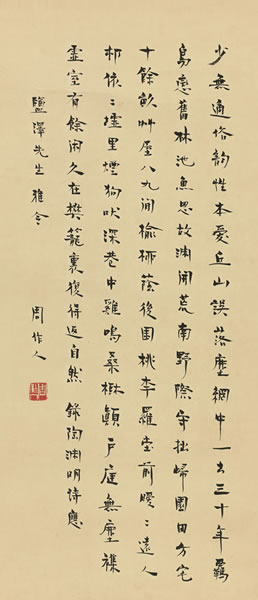 少無適俗韻性本愛丘山誤落塵網中一去三十年羈
鳥戀舊林池魚思故淵開荒南野際守拙歸園田方宅
十餘畝艸屋八九間榆桺蔭後園桃李羅堂前曖〻遠人
邨依〻墟里煙狗吠深巷中雞鳴桑樹顛戶庭無塵襍
虛室有餘閑久在樊籠裏復得返自然 錄陶淵明詩應
鹽澤先生雅令
周作人